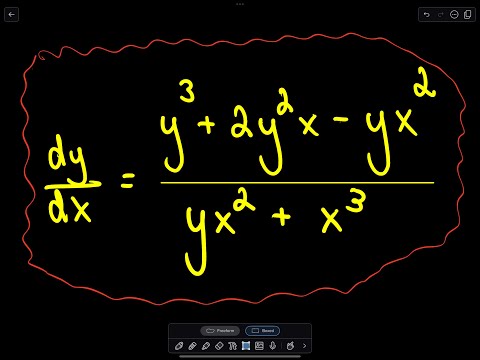 dy/dx = (y³ + 2y²x - yx²)/(yx² + x³)
Freeform Boxed